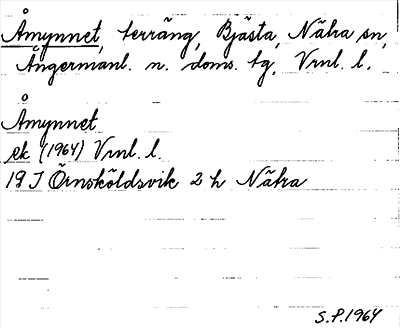 Åmynnet, terräng, Bjästa, Nätra sn,
Ångermanl. n. doms. tg, Vrnl. l.
Åmynnet
ek (1964) Vrnl. l.
19 J Örnsköldsvik 2 h Nätra
S.P.1964